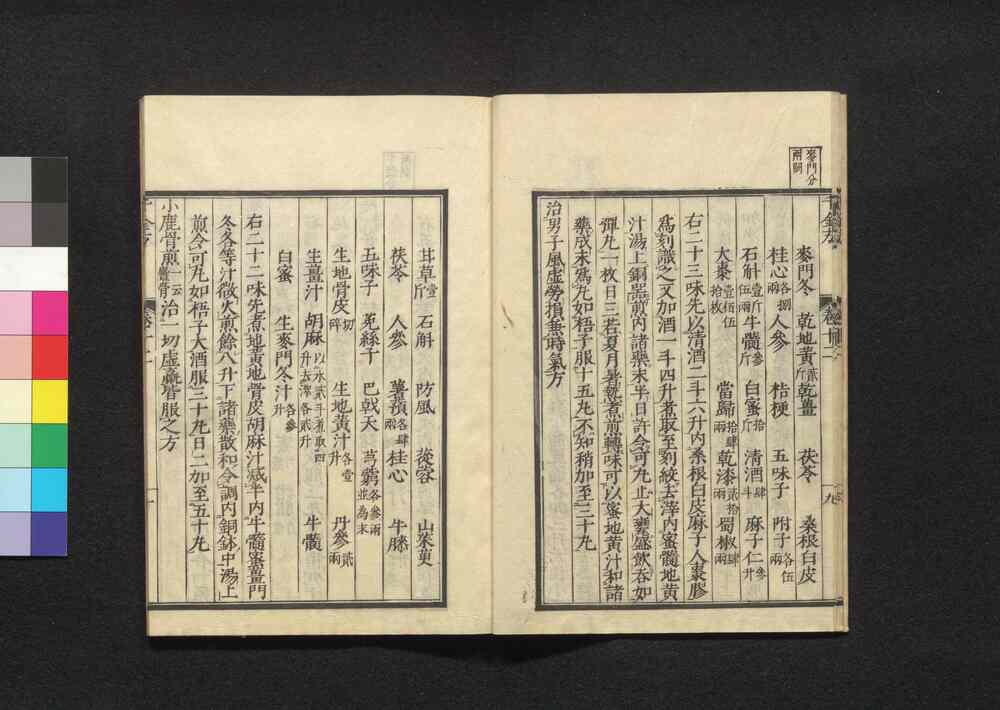 麥門分
兩闕
千金方
卷十二
九
麥門冬 乾地黃斤貳乾薑 茯苓 桑根白皮
桂心各捌兩人參 桔梗 五味子 附子各伍兩
石斛壹斤伍兩牛髓參斤白蜜拾斤清酒肆斗麻子仁參升
大棗壹佰伍拾枚 當歸拾肆兩乾漆貳拾兩蜀椒肆兩
右二十三味先以清酒二斗六升內桑根白皮麻子人棗膠
爲刻識之又加酒一斗四升煮取至刻絞去滓內蜜髓地黃
汁湯上銅器煎內諸藥末半日許令可丸止大甕盛飲吞如
彈丸一枚日三若夏月暑熱煮煎轉味可以蜜地黃汁和諸
藥成末爲丸如梧子服十五丸不知稍加至三十丸
治男子風虛勞損兼時氣方
甘草壹斤 石斛 防風 蓯蓉 山茱萸
茯苓 人參 薯蕷各肆兩桂心 牛膝
五味子 菟絲子 巴戟天 芎藭各參兩並爲末
生地骨皮切碎 生地黃汁各壹升 丹參貳兩
生薑汁 胡麻以水貳斗煮取四升去滓各貳升 牛髓
白蜜 生麥門冬汁各參升
右二十二味先煮地黃地骨皮胡麻汁減半內牛髓蜜薑門
冬各等汁微火煎餘八升下諸藥散和令調內銅鉢中湯上
煎令可丸如梧子大酒服三十丸日二加至五十丸
小鹿骨煎一云麞骨治一切虛羸皆服之方
千金方
卷十二